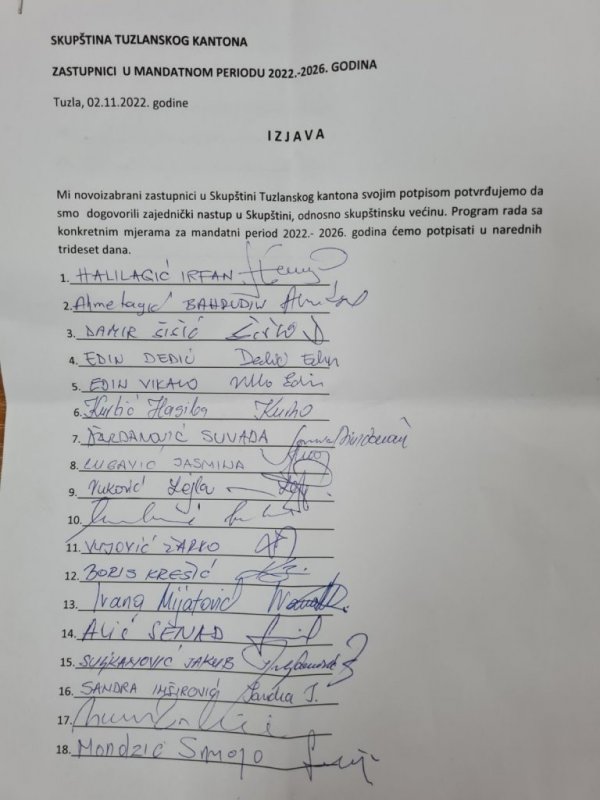 SKUPŠTINA TUZLANSKOG KANTONA
ZASTUPNICI U MANDATNOM PERIODU 2022.-2026. GODINA
Tuzla, 02.11.2022. godine
IZJAVA
Mi novoizabrani zastupnici u Skupštini Tuzlanskog kantona svojim potpisom potvrđujemo da
smo dogovorili zajednički nastup u Skupštini, odnosno skupštinsku većinu. Program rada sa
konkretnim mjerama za mandatni period 2022.- 2026. godina ćemo potpisati u narednih
trideset dana.
1. HALILAGIĆ IRFAN
2. Ahmetagić BAHRUDIN
3. DAMIR ŠIŠIĆ
4. EDIN DEDIĆ Dedić Edin
5. EDIN VIKALO Edin
6. Kurtić Hasiba
7. SUVADA
8. LUGAVIĆ JASMINA
9. Vuković Lejla
10.
11. VUJOVIĆ ŽARKO
12. BORIS KREŠIĆ
13. Ivana Mijatović
14. ALIĆ SENAD
15. SULJKANOVIĆ JAKUB
16. SANDRA Sandra I.
17.
18. Mondžić Smajo